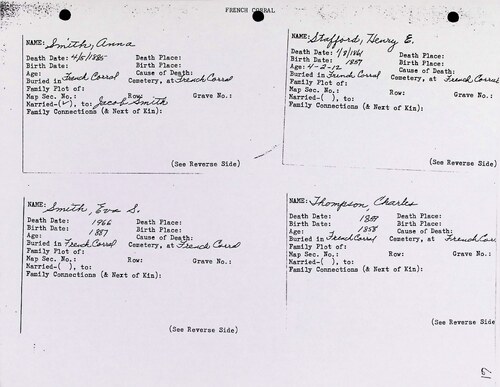 FRENCH CORRAL
NAME: Smith, Anna
Death Date: 4/5/1885 Death Place:
Birth Date: Birth Place:
Age: Cause of Death:
Buried in French Corral Cemetery, at French Corral
Family Plot of:
Map Sec. No.: Row: Grave No.:
Married-(✓), to: Jacob Smith
Family Connections (& Next of Kin):
(See Reverse Side)
NAME: Stafford, Henry E.
Death Date: 1/8/1861 Death Place:
Birth Date: 1857 Birth Place:
Age: 4-2-12 Cause of Death:
Buried in French Corral Cemetery, at French Corral
Family Plot of:
Map Sec. No.: Row: Grave No.:
Married-( ), to:
Family Connections (& Next of Kin):
(See Reverse Side)
NAME: Smith, Eva S.
Death Date: 1966 Death Place:
Birth Date: 1887 Birth Place:
Age: Cause of Death:
Buried in French Corral Cemetery, at French Corral
Family Plot of:
Map Sec. No.: Row: Grave No.:
Married-( ), to:
Family Connections (& Next of Kin):
(See Reverse Side)
NAME: Thompson, Charles
Death Date: 1859 Death Place:
Birth Date: 1858 Birth Place:
Age: Cause of Death:
Buried in French Corral Cemetery, at French Cor
Family Plot of:
Map Sec. No.: Row: Grave No.:
Married-( ), to:
Family Connections (& Next of Kin):
(See Reverse Side
17